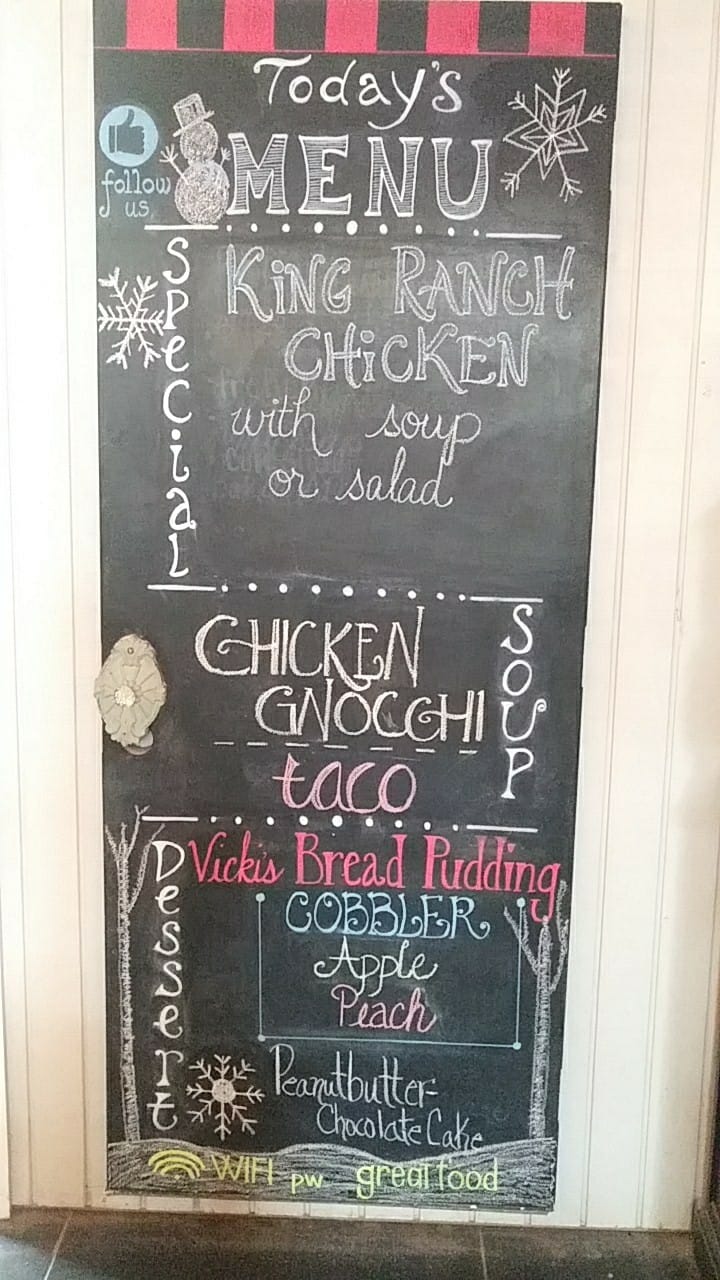 Today's
MENU
follow
us
Special
KiNG RANCH
CHiCKEN
with soup
or salad
SOUP
CHICKEN
GNOCCHI
taco
Dessert
Vicki's Bread Pudding
COBBLER
Apple
Peach
Peanutbutter-
Chocolate Cake
WIFI pw greatfood